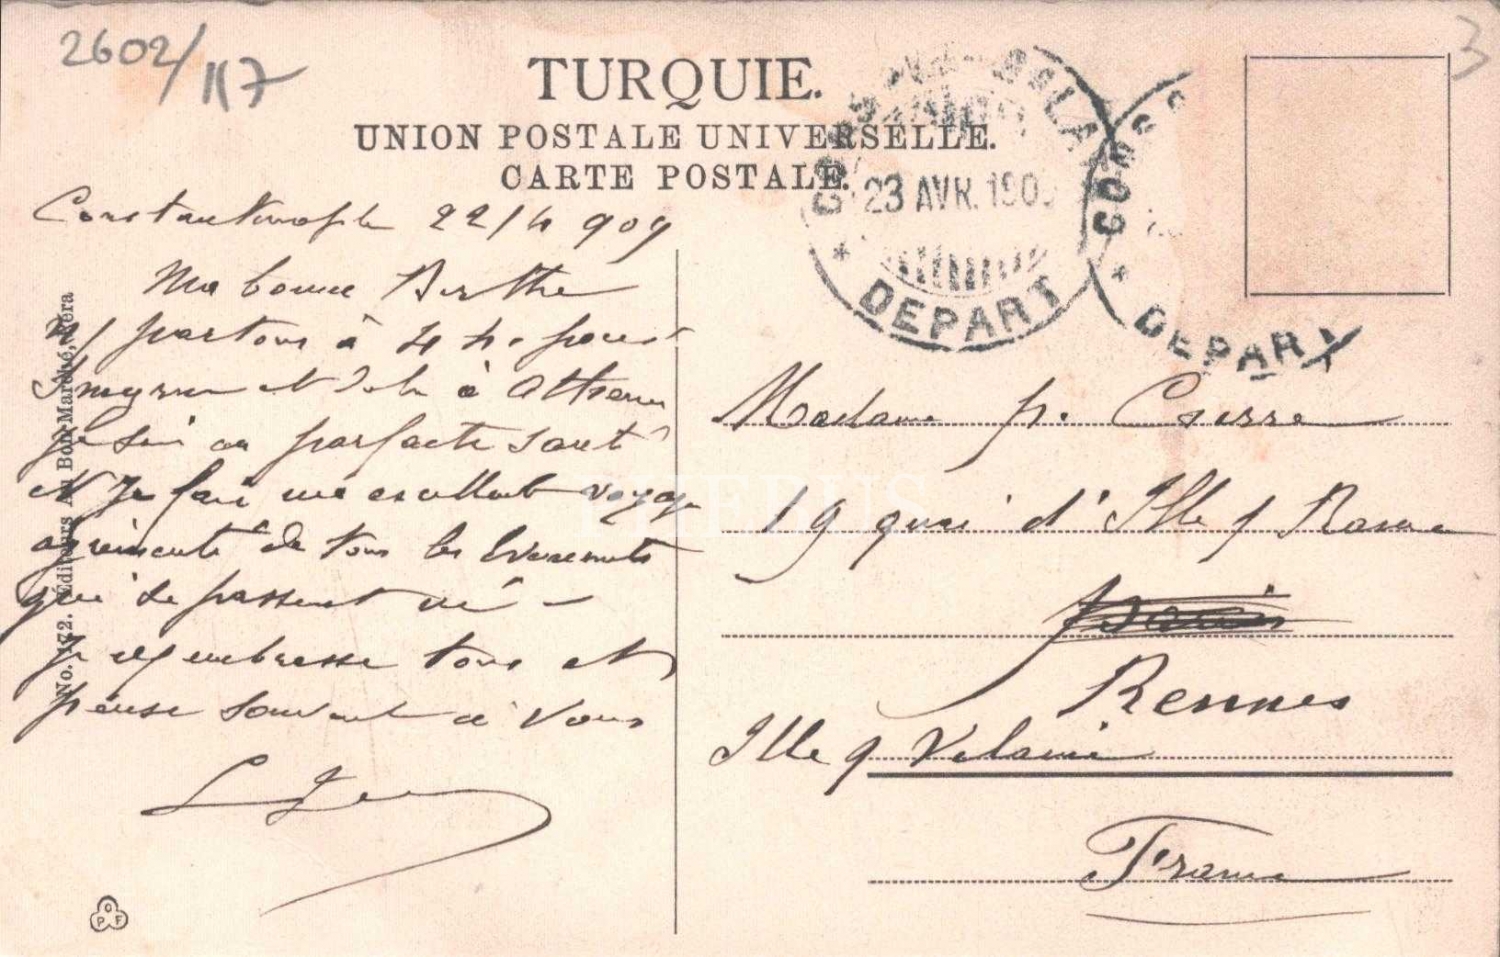 2602/117
3
TURQUIE.
UNION POSTALE UNIVERSELLE.
CARTE POSTALE.
GALATA
23 AVR. 190
DEPART
CONS
DEPART
Constantinople 22/4 909
Ma bonne Berthe
Ns/ partons à 4 h. pour
Smyrne et de là à Athènes
je suis en parfaite santé
et je fais un excellent voyage
agrémenté de tous les évènements
qui se passent ici –
Je vs embrasse tous et
pense souvent à vous
No. 172. Editeurs Au Bon Marché, Péra
O P F
Madame p.
19 quai d'Ille &
Paris
Rennes
Ille & Vilaine
France
PHEBUS